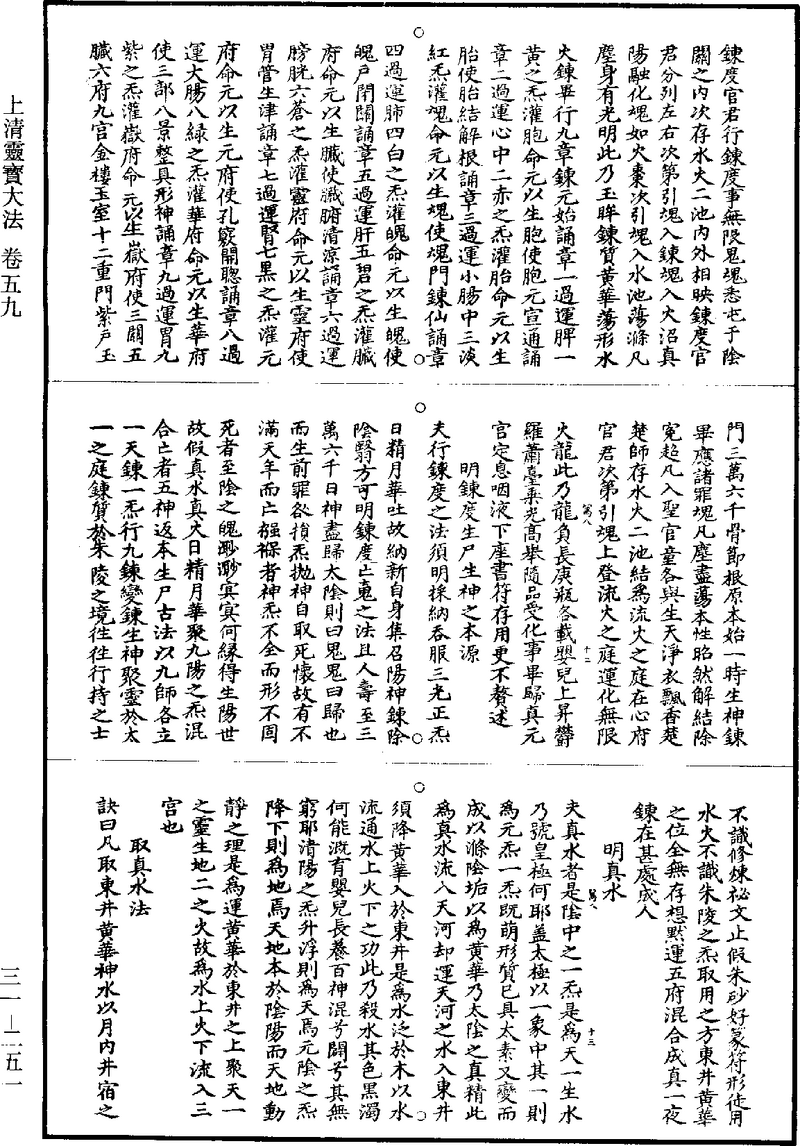 上清靈寶大法　卷五九
三一—二五一
鍊度官君行鍊度事無限鬼魂悉屯于陰
關之内次存水火二池内外相映鍊度官
君分列左右次第引魂入鍊魂入火沼真
陽融化魂如火棗次引魂入水池蕩滌凡
塵身有光明此乃玉眸鍊質黄華蕩形水
火鍊畢行九章鍊元始誦章一過運脾一
黄之炁灌胞命元以生胞使胞元宣通誦
章二過運心中二赤之炁灌胎命元以生
胎使胎結解根誦章三過運小腸中三淡
紅炁灌魂命元以生魂使魂門鍊仙誦章
四過運肺四白之炁灌魄命元以生魄使
魄戸閉關誦章五過運肝五碧之炁灌臟
府命元以生臟使臟腑清凉誦章六過運
膀胱六蒼之炁灌靈府命元以生靈府使
胃管生津誦章七過運腎七黒之炁灌元
府命元以生元府使孔竅開聰誦章八過
運大腸八緑之炁灌華府命元以生華府
使三部八景整具形神誦章九過運胃九
紫之炁灌嶽府命元以生嶽府使三關五
臟六府九宫金樓玉室十二重門紫戸玉
門三萬六千骨節根原本始一時生神鍊
畢應諸罪魂凡塵盡蕩本性昭然解結除
寃超凡入聖官童各與生天淨衣飄香楚
楚師存水火二池結爲流火之庭在心府
官君次第引魂上登流火之庭運化無限
火龍此乃龍負長庚瓶各載嬰兒上昇欝
羅蕭臺乗光高舉隨品受化事畢歸真元
宫定息咽液下座書符存用更不贅述
明鍊度生尸生神之本源
夫行鍊度之法須明採納吞服三光正炁
日精月華吐故納新自身集召陽神鍊除
陰翳方可明鍊度亡䰟之法且人壽至三
萬六千日神盡歸太陰則曰鬼鬼曰歸也
而生前罪欲損炁拋神自取死懷故有不
滿天年而亡襁褓者神炁不全而形不固
死者至陰之魄渺渺寅寅何縁得生陽世
故假真水真火日精月華聚九陽之炁混
合亡者五神返本生尸古法以九師各立
一天鍊一炁行九鍊變鍊生神聚靈於太
一之庭鍊質於朱陵之境徃徃行持之士
不識修煉祕文止假朱砂好篆符形徒用
水火不識朱陵之炁取用之方東井黄華
之位全無存想黙運五府混合成真一夜
鍊在甚處成人
明真水
夫真水者是陰中之一炁是爲天一生水
乃號皇極何耶蓋太極以一象中其一則
爲元炁一炁既萌形質已具太素又變而
成以滌陰垢以爲黄華乃太陰之真精此
爲真水流入天河却運天河之水入東井
須降黄華入於東井是爲水泛於木以水
流通水上火下之功此乃殺水其色黒濁
何能溉育嬰兒長養百神混兮闢兮其無
窮耶清陽之炁升浮則爲天焉元陰之炁
降下則爲地焉天地本於陰陽而天地動
靜之理是爲運黄華於東井之上聚天一
之靈生地二之火故爲水上火下流入三
宫也
取真水法
訣曰凡取東井黄華神水以月内井宿之